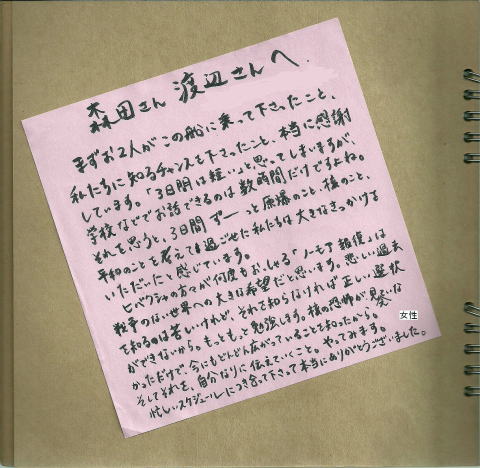 森田さん 渡辺さんへ
まずお2人がこの船に乗って下さったこと、
私たちに知るチャンスを下さったこと、本当に感謝
しています。「3日間は短い」と思ってしまいますが、
学校などでお話できるのは数時間だけですよね。
それを思うと、3日間ずーっと原爆のこと、核のこと、
平和のことを考えて過ごせた私たちは大きなきっかけを
いただいたと感じています。
ヒバクシャの方々が何度もおっしゃる「ノーモア報復」は
戦争のない世界への大きな希望だと思います。悲しい過去
を知るのは苦しいけれど、それを知らなければ正しい選択
ができないから。もっともっと勉強します。核の恐怖が見えな
かっただけで、今にもどんどん広がっていることを知ったから。
そしてそれを、自分なりに伝えていくこと。やってみます。
忙しいスケジュールにつき合って下さって本当にありがとうございました。
女性